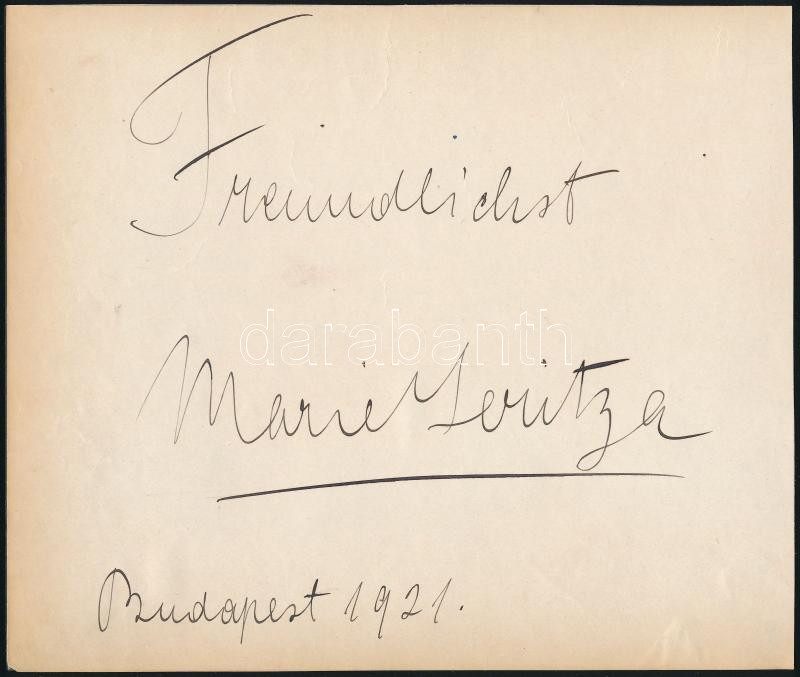 Freundlichst
darabanth
Marie Jeritza
Budapest 1921.